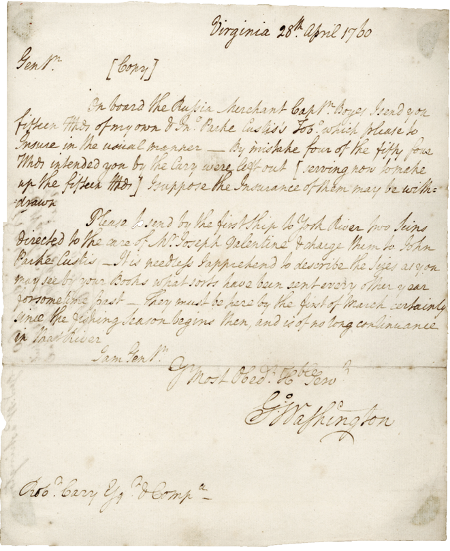 Virginia 28th. April 1760
Genn.
[Copy]
On board the Russia Merchant Captn. Boyes I send you
fifteen Hhds of my own & Jno. Parke Custis's Tobo. which please to
Insure in the usual manner — By mistake four of the fifty four
Hhds intended you by the Cary were left out [serving now to make
up the fifteen Hhds] I suppose the Insurance of them may be with-
drawn
Please to send by the first ship to York River two Seins
directed to the care of Mr. Joseph Valentine & charge them to John
Parke Custis — It is needless I apprehend to describe the Sizes as you
may see by your Books what sorts have been sent every other year
for sometime past — They must be here by the first of March certainly
since the Fishing Season begins then, and is of no long continuance
in that River
I am Genn.
Yr Most Obedt. Hble Servt.
Go Washington
Robt. Cary Esqr. & Compa. —